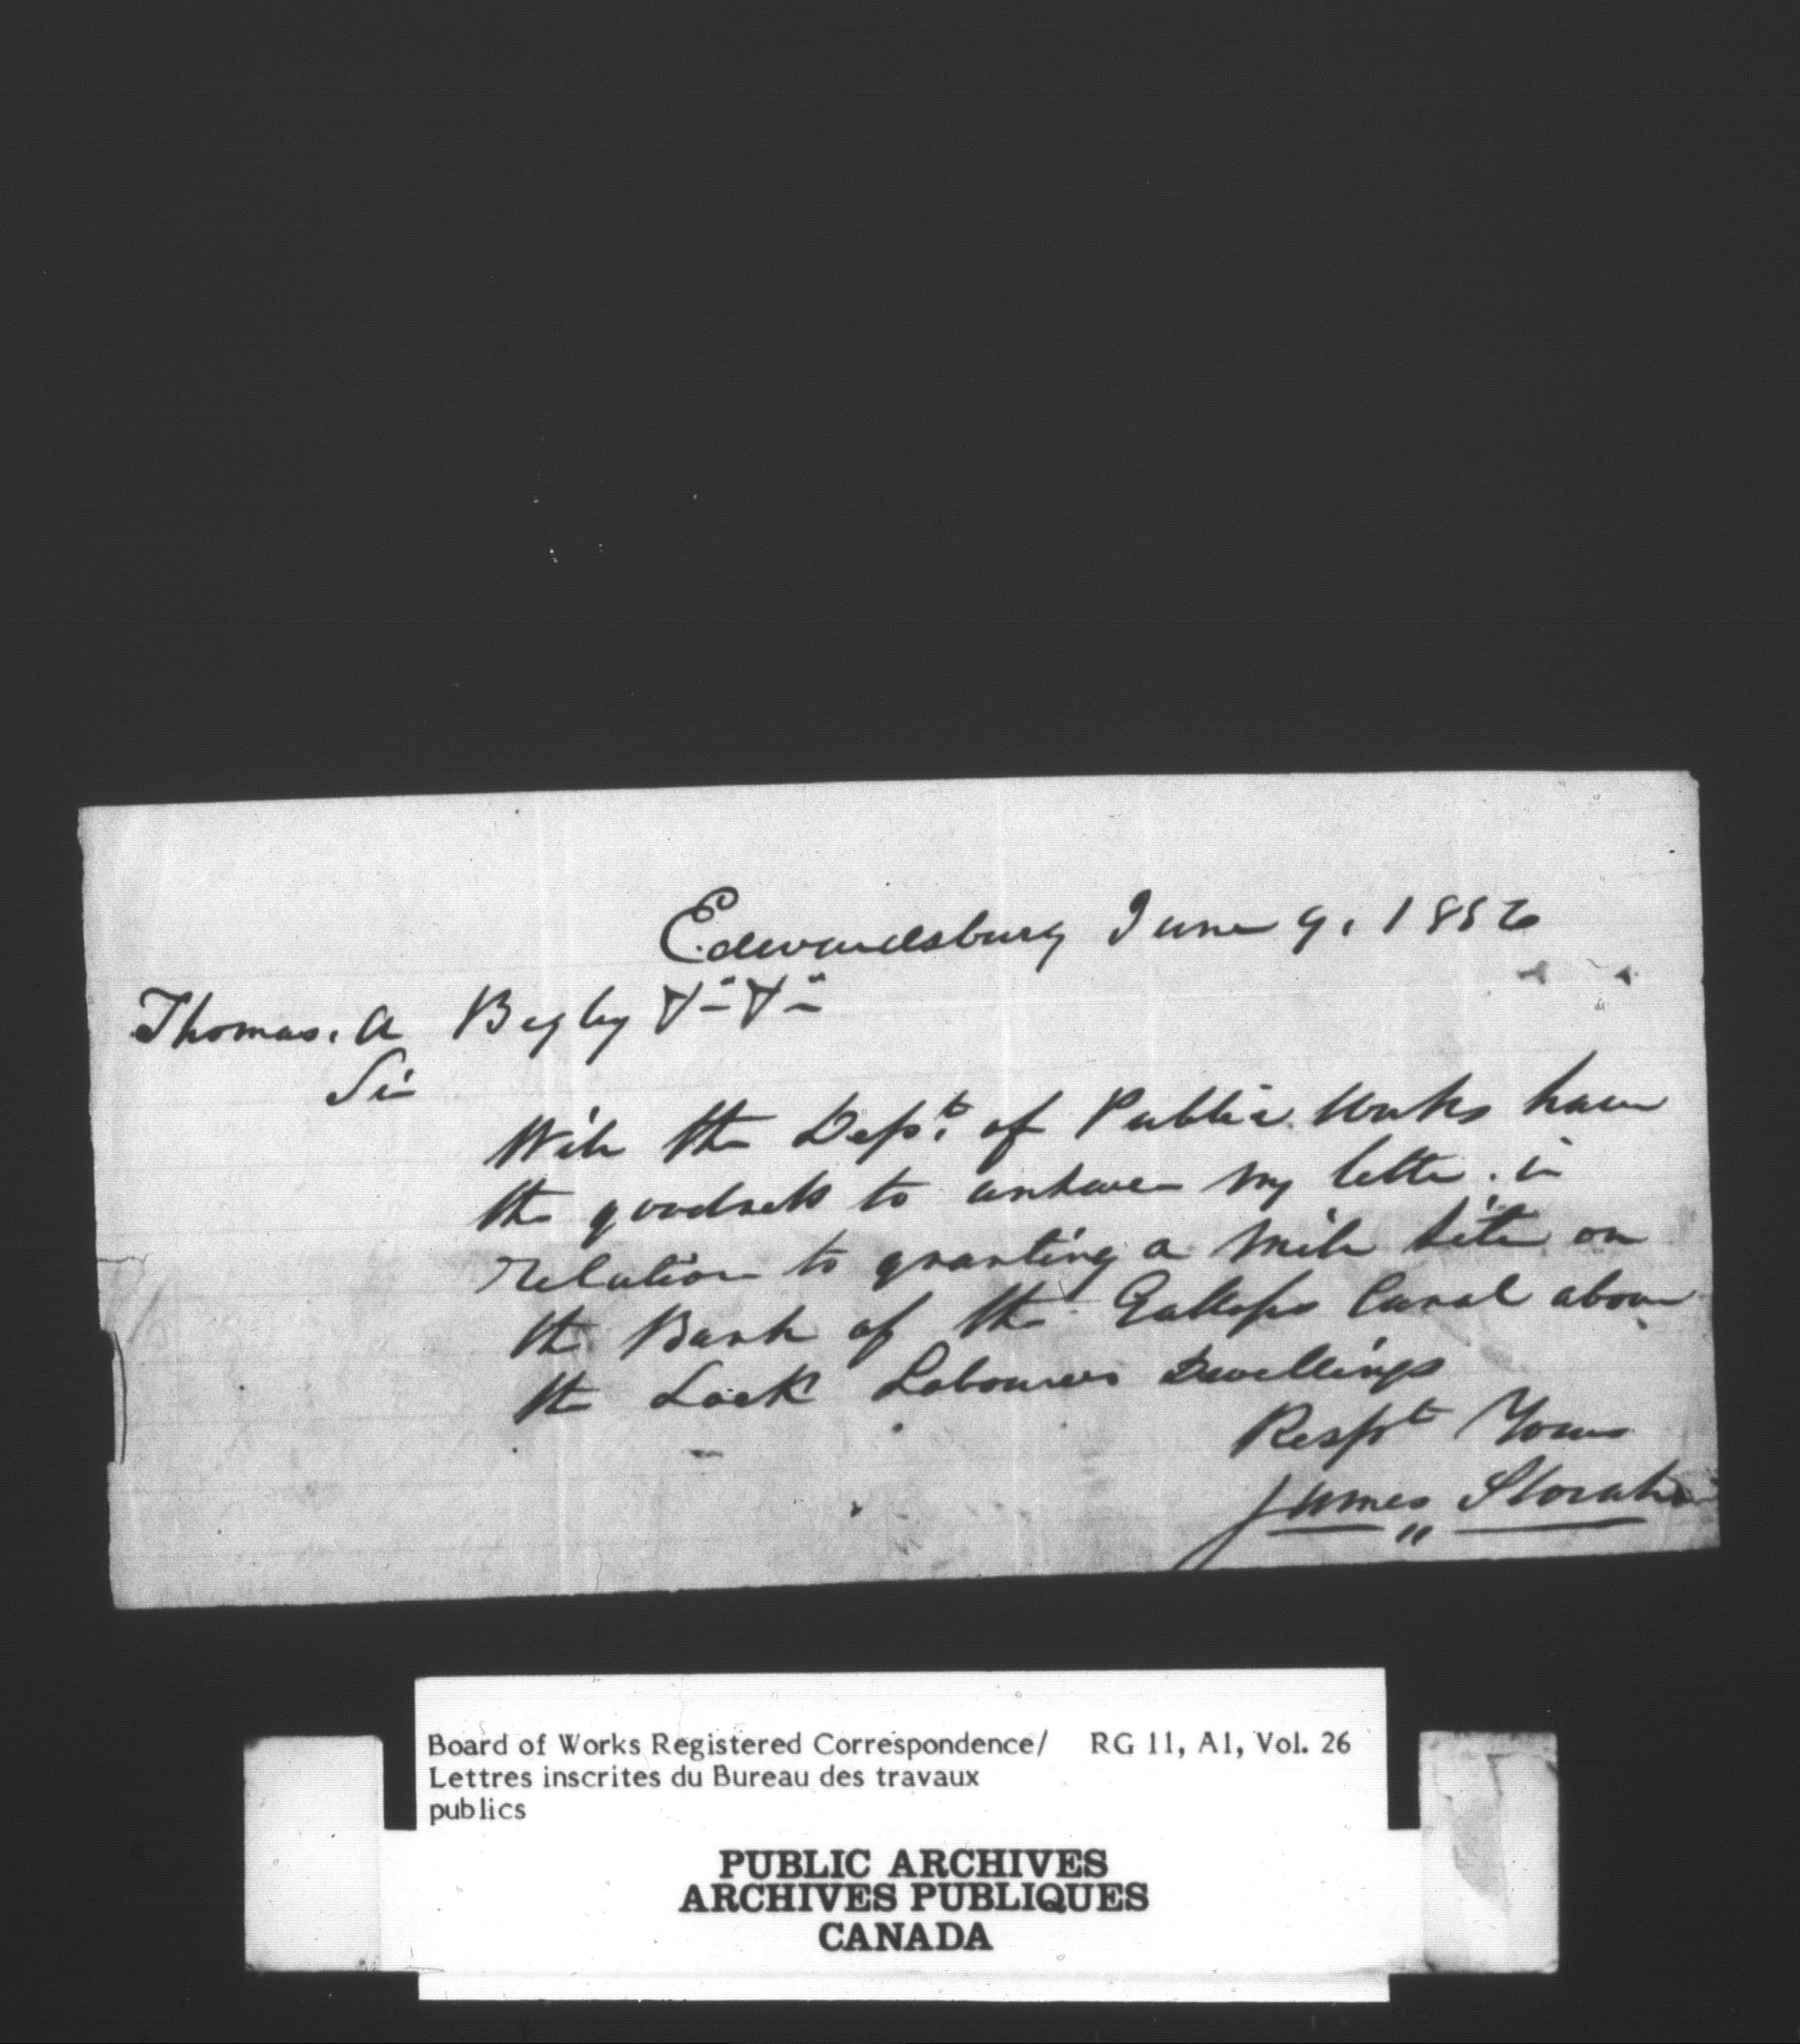 Edwardsburg June 9, 1856
Thomas. A Begly
Sir
Will the Dept. of Public Works have
the goodness to answer my letter. in
relation to granting a Mill site on
the Bank of the Gallops Canal above
the Lock Labourers Dwellings
Respt Yours
James
Board of Works Registered Correspondence/ RG 11, A1, Vol. 26
Lettres inscrites du Bureau des travaux
publics
PUBLIC ARCHIVES
ARCHIVES PUBLIQUES
CANADA